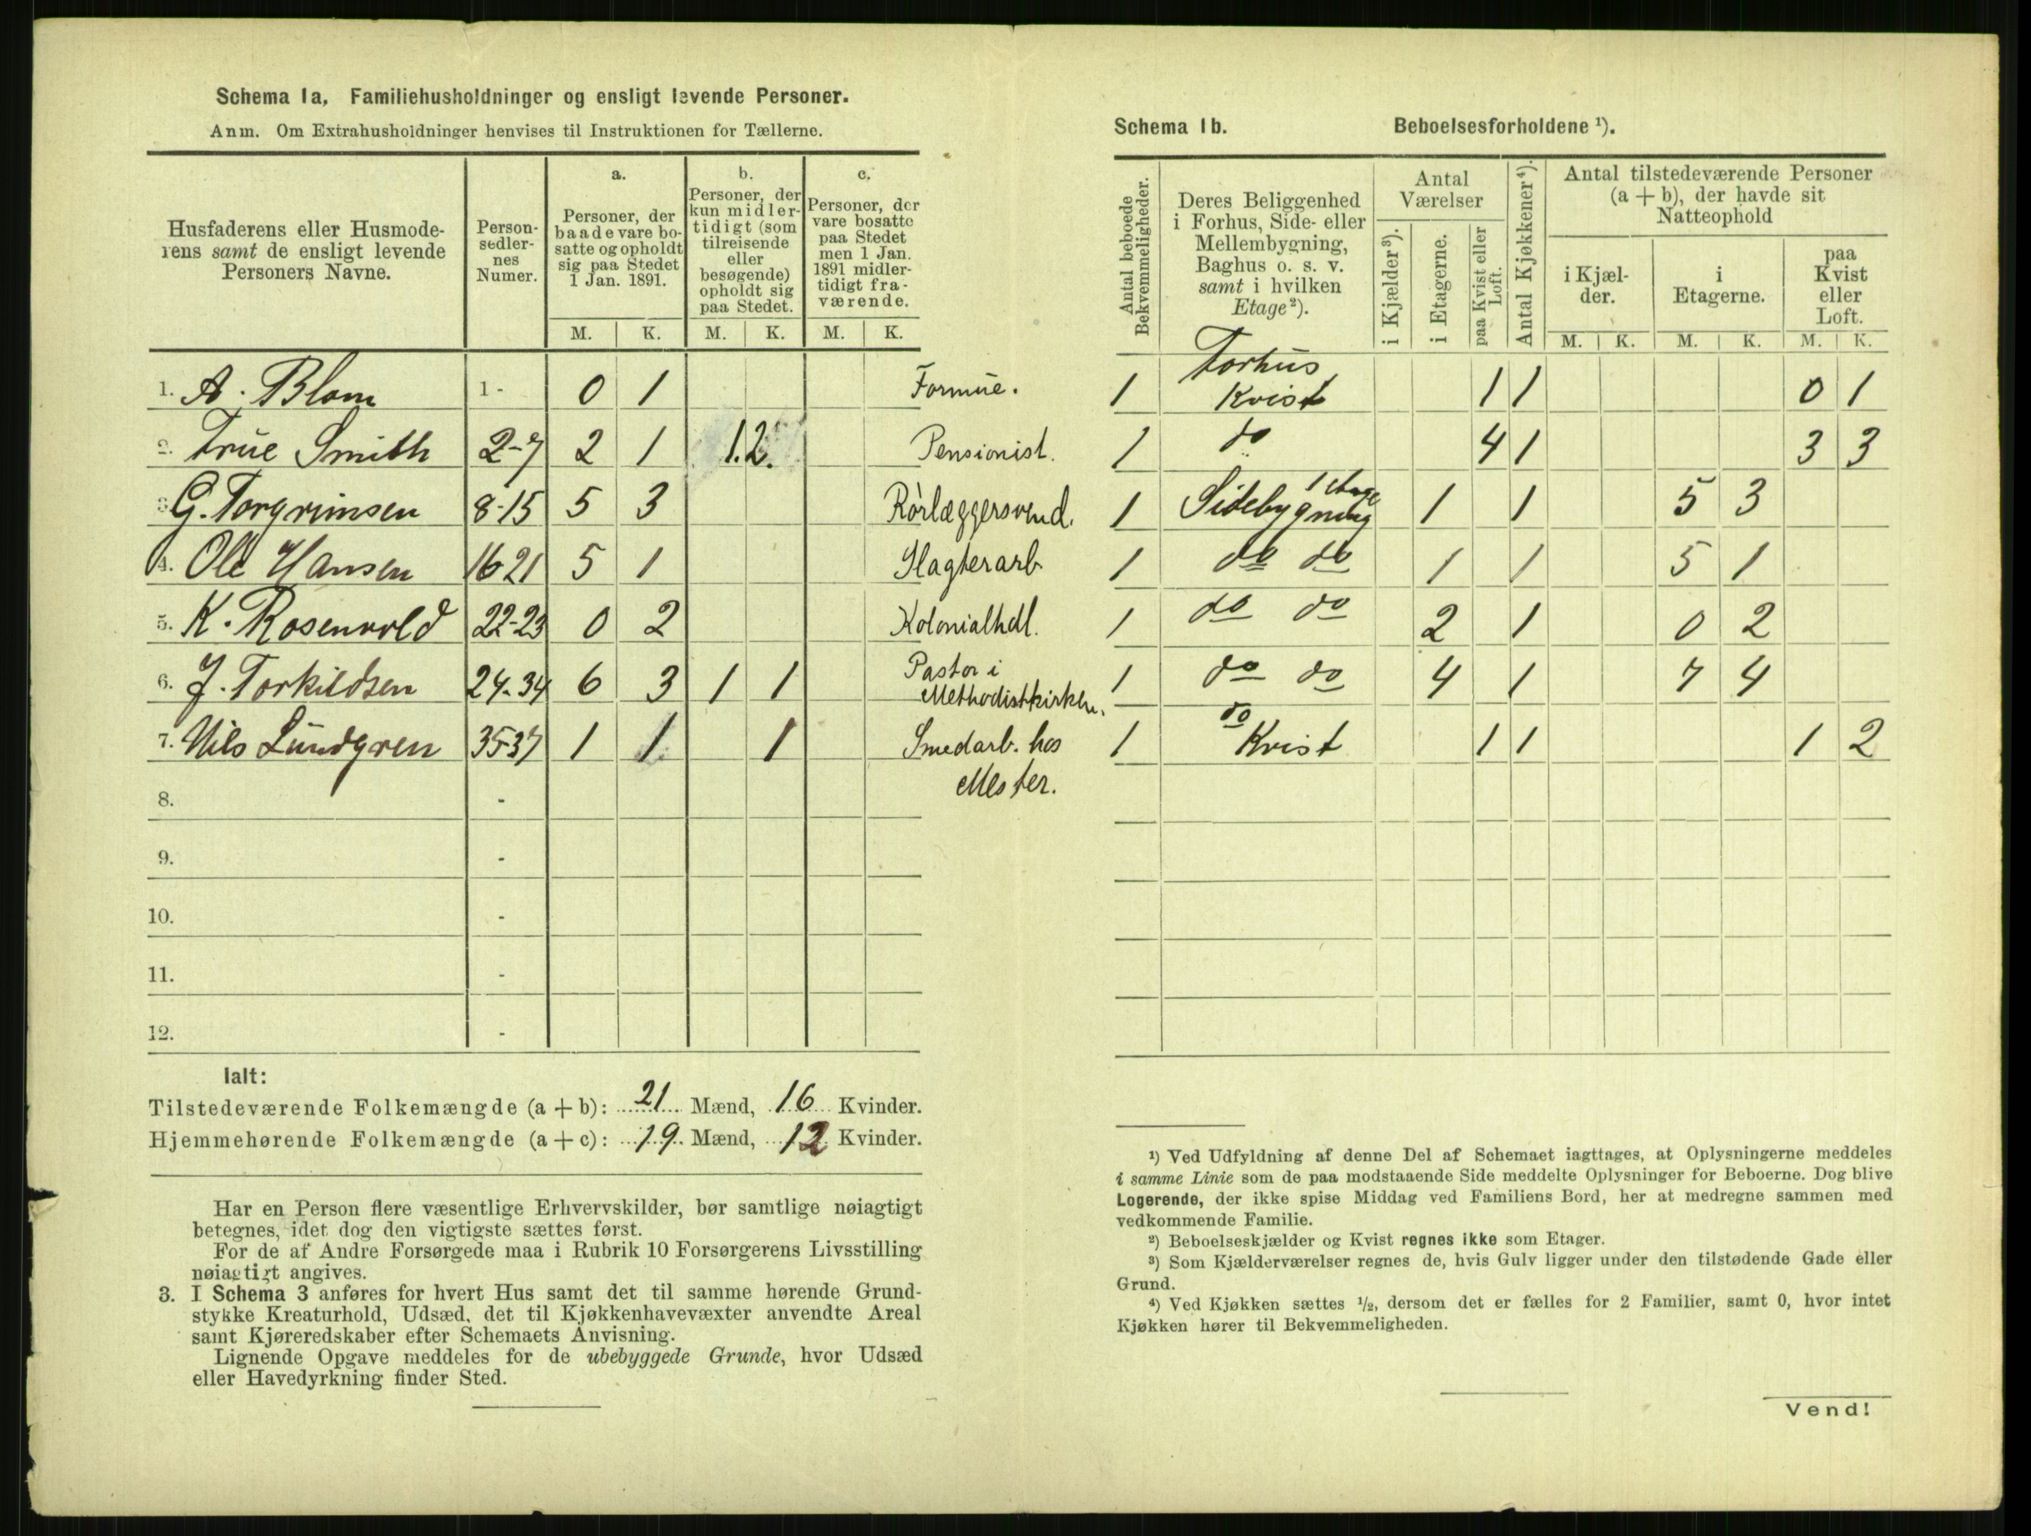 Schema 1a, Familiehusholdninger og ensligt levende Personer.
Anm. Om Extrahusholdninger henvises til Instruktionen for Tællerne.
Husfaderens eller Husmoderens samt de ensligt levende Personers Navne.
Personsedlernes Numer.
a. Personer, der baade vare bosatte og opholdt sig paa Stedet 1 Jan. 1891.
b. Personer, der kun midlertidigt (som tilreisende eller besøgende) opholdt sig paa Stedet.
c. Personer, der vare bosatte paa Stedet men 1 Jan. 1891 midlertidigt fraværende.
M. K. M. K. M. K.
1. A. Blom 1 - 0 1 Formue.
2. True Smith 2-7 2 1 1. 2. Pensionist.
3. G. Torgrimsen 8-15 5 3 Rörlæggersvend.
4. Ole Hansen 16-21 5 1 Slagterarb
5. K. Rosenvold 22-23 0 2 Kolonialhdl.
6. J. Torkildsen 24-34 6 3 1 1 Pastor i Methodistkirken.
7. Nils Lundgren 35-37 1 1 1 Smedarb. hos Mester.
8. -
9. -
10. -
11. -
12. -
Ialt:
Tilstedeværende Folkemængde (a + b): 21 Mænd, 16 Kvinder.
Hjemmehørende Folkemængde (a + c): 19 Mænd, 12 Kvinder.
Har en Person flere væsentlige Erhvervskilder, bør samtlige nøiagtigt
betegnes, idet dog den vigtigste sættes først.
For de af Andre Forsørgede maa i Rubrik 10 Forsørgerens Livsstilling
nøiagtigt angives.
3. I Schema 3 anføres for hvert Hus samt det til samme hørende Grund-
stykke Kreaturhold, Udsæd, det til Kjøkkenhavevæxter anvendte Areal
samt Kjøreredskaber efter Schemaets Anvisning.
Lignende Opgave meddeles for de ubebyggede Grunde, hvor Udsæd
eller Havedyrkning finder Sted.
Schema 1b. Beboelsesforholdene ¹).
Antal beboede Bekvemmeligheder.
Deres Beliggenhed i Forhus, Side- eller Mellembygning, Baghus o. s. v. samt i hvilken Etage²).
Antal Værelser
i Kjælder³). i Etagerne. paa Kvist eller Loft.
Antal Kjøkkener⁴).
Antal tilstedeværende Personer (a + b), der havde sit Natteophold
i Kjælder. i Etagerne. paa Kvist eller Loft.
M. K. M. K. M. K.
1 Forhus Kvist 1 1 0 1
1 do 4 1 3 3
1 Sidebygning 1 Etage 1 1 5 3
1 do do 1 1 5 1
1 do do 2 1 0 2
1 do do 4 1 7 4
1 do Kvist 1 1 1 2
¹) Ved Udfyldning af denne Del af Schemaet iagttages, at Oplysningerne meddeles
i samme Linie som de paa modstaaende Side meddelte Oplysninger for Beboerne. Dog blive
Logerende, der ikke spise Middag ved Familiens Bord, her at medregne sammen med
vedkommende Familie.
²) Beboelseskjælder og Kvist regnes ikke som Etager.
³) Som Kjælderværelser regnes de, hvis Gulv ligger under den tilstødende Gade eller
Grund.
⁴) Ved Kjøkken sættes ½, dersom det er fælles for 2 Familier, samt 0, hvor intet
Kjøkken hører til Bekvemmeligheden.
Vend!